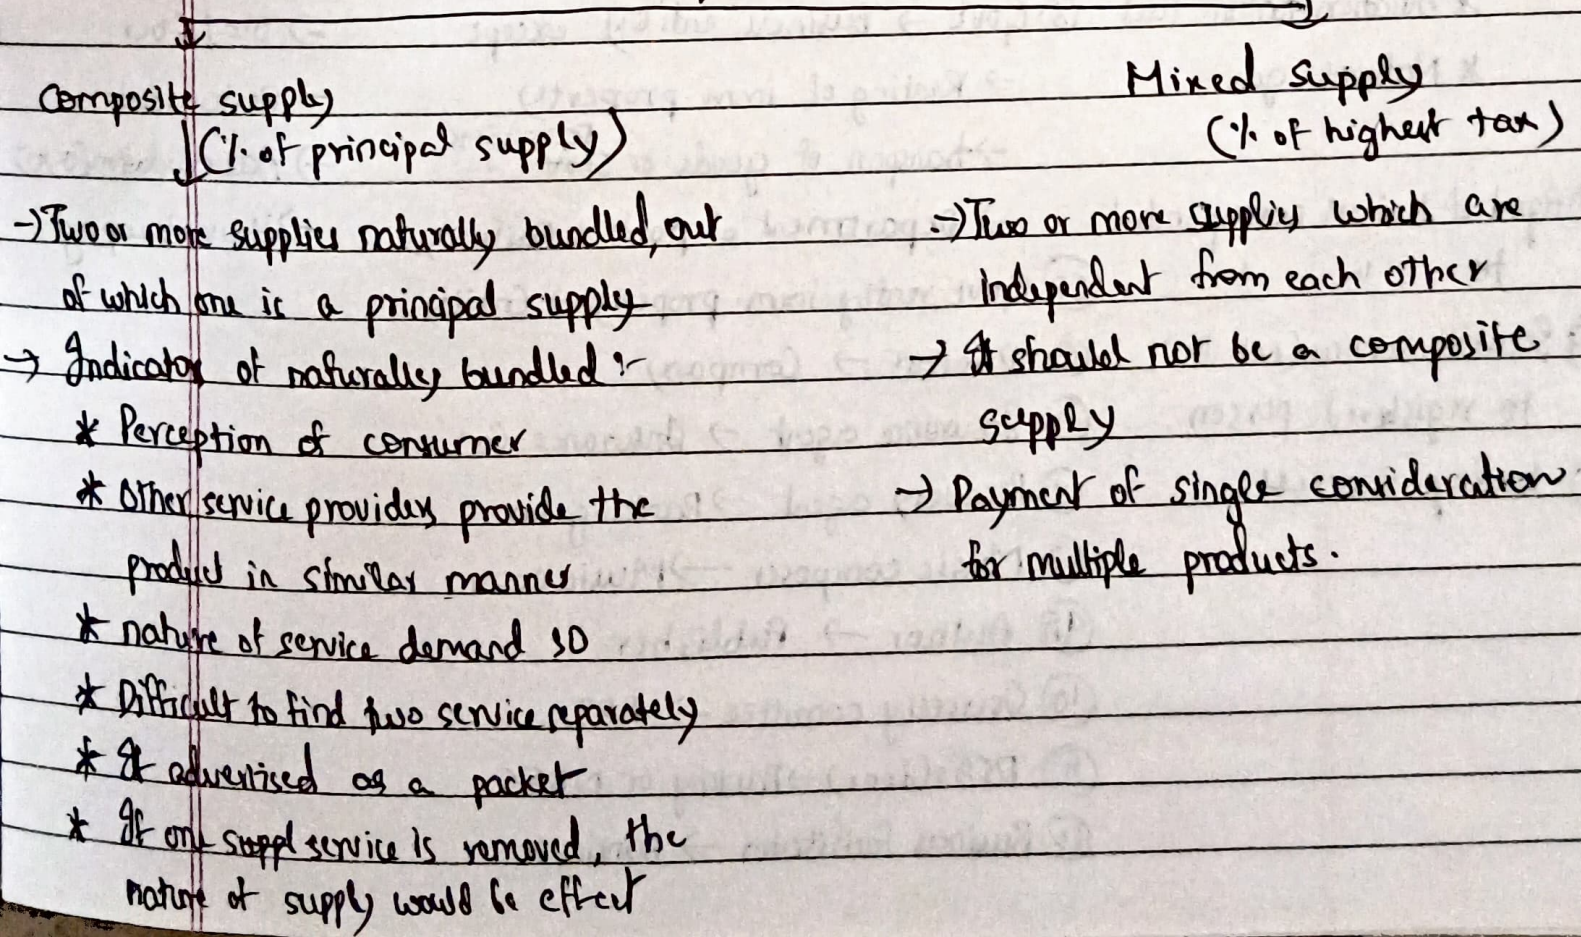 Composite supply
(% of principal supply)
→ Two or more supplies naturally bundled, out
of which one is a principal supply
→ Indicator of naturally bundled :-
* Perception of consumer
* Other service providers provide the
product in similar manner
* nature of service demand so
* Difficult to find two service separately
* It advertised as a packet
* If one suppl service is removed, the
nature of supply would be effect
Mixed supply
(% of highest tax)
→ Two or more supplies which are
independent from each other
→ It should not be a composite
supply
→ Payment of single consideration
for multiple products.